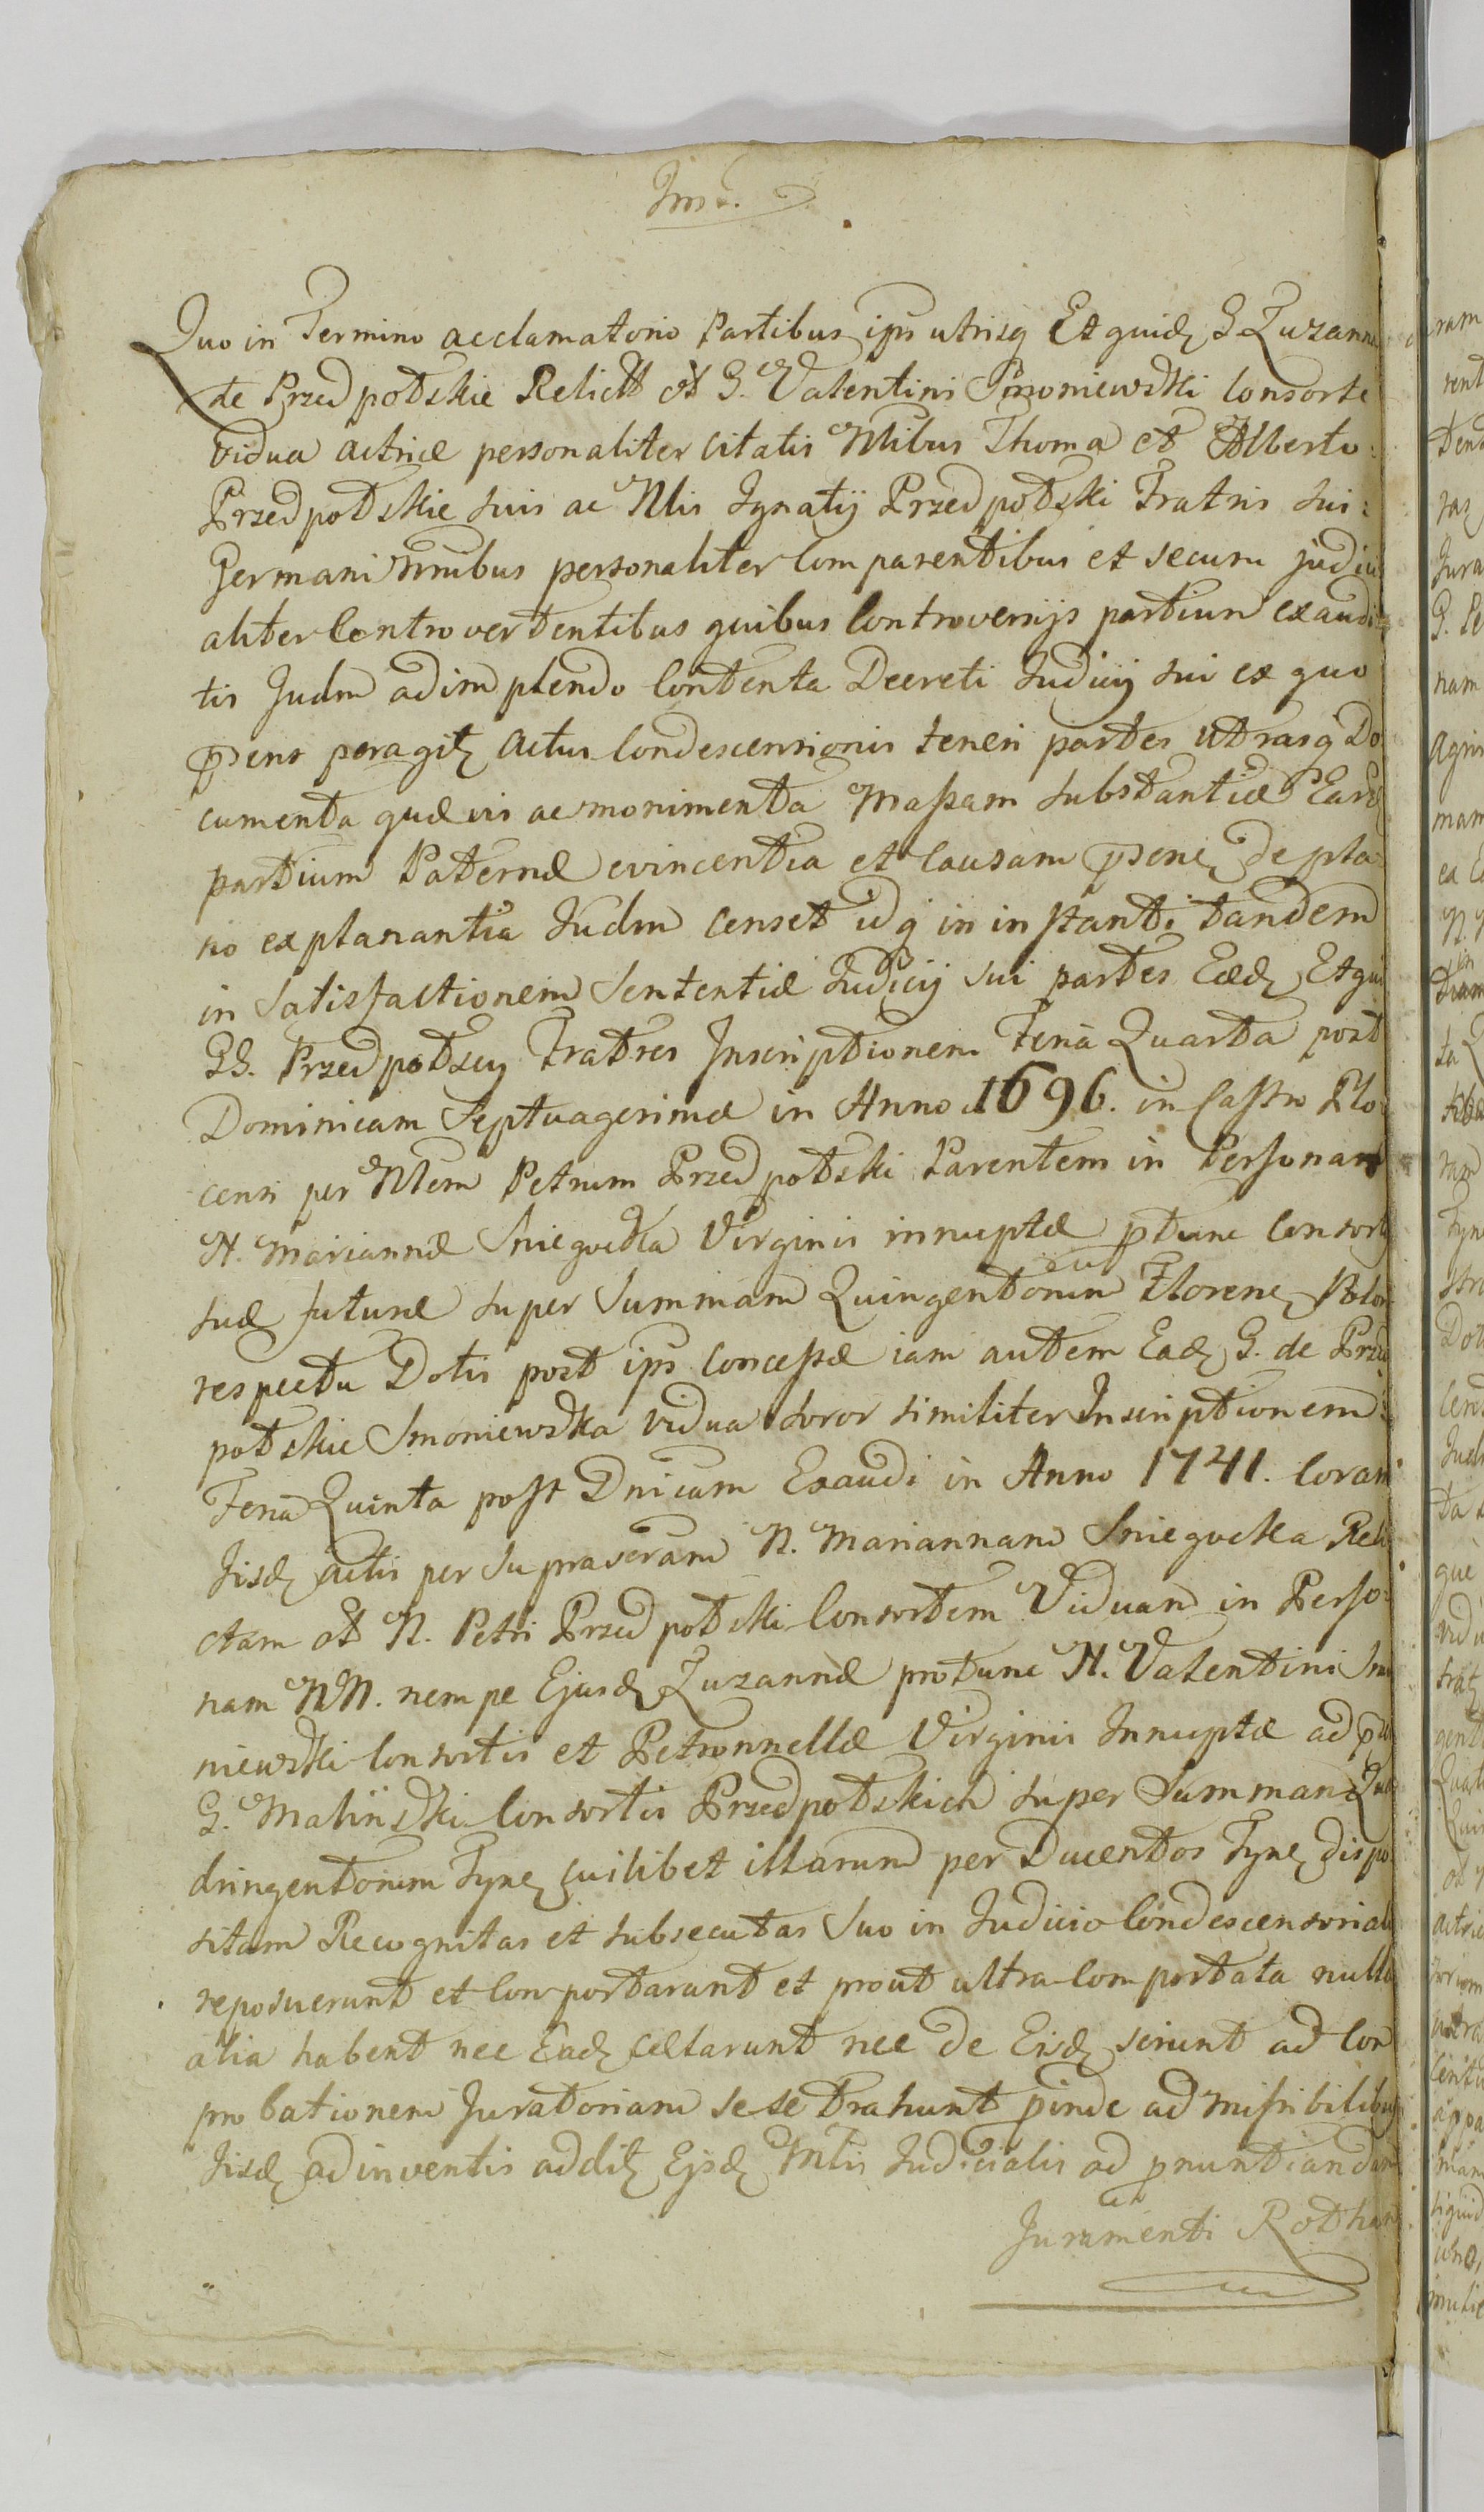 Quo in Termino acclamatorio Partibus ips utrisq Et quidz G Zuzanna
de Przedpotskie Relict olt G. Valentini Smoniewski Consorte
vidua actrice personaliter citatis Nlibus Thoma et Alberto
Przedpotskie suis ac Nlis Ignatij Przedpotski Fratris sui
Germani personaliter Comparentibus et secum judici
aliter Controvertentibus quibus Controversijs partium exaudi
tis Judm adimplendo Contenta Decreti Judicij sui ex quo
pens peragitz actus Condescensionis teneri partes utrasq Do
cumenta quævis ac monimenta Massam substantiæ Eard
partium Paternæ evincentia et Causam psenz de pla
no explanantia Judm censet idq in instanti tandem
in satisfactionem Sententiæ Judicij sui partes Eædz Et qui
GG. Przedpotscy Fratres Inscriptionem Feria Quarta post
Dominicam Septuagesimæ in Anno 1696. in Castro Plo
censi per Nlem Petrum Przedpotski Parentem in Personam
N. Mariannæ Sniegucka Virginis innuptæ ptunc Consort
suæ futuræ super Summam Quingentorum Florenz Polon
respectu Dotis post ips Concessæ iam autem Eadz G. de Przed
potskie Smoniewska vidua soror similiter Inscriptionem
Feria Quinta post Dnicam Exaudi in Anno 1741. Coram
Iisdz actis per suprascram N. Mariannam Sniegucka Reli
ctam olt N. Petri Przedpotski Consortem Viduam in Perso
nam NN. nempe Ejusdz Zuzannæ protunc N. Valentini Smo
niewski Consortis et Petronnellæ Virginis Innuptæ ad
G. Malinski Consortis Przedpotskich super Summam Qua
dringentorum Fynz cuilibet illarum per Ducentos Fynz dispo
sitam Recognitas et subsecutas suo in Judicio Condescensoriali
reposuerunt et Comportarunt et prout ultra Comportata nulla
alia habent nec Eadz cælarunt nec de Eisdz sciunt ad Com
probationem Juratoriam sese trahunt pinde admissibilibus
Iisdz adinventis additz Ejsdz Mtlis Judicialis ad pnuntiandam
Juramenti Rotham